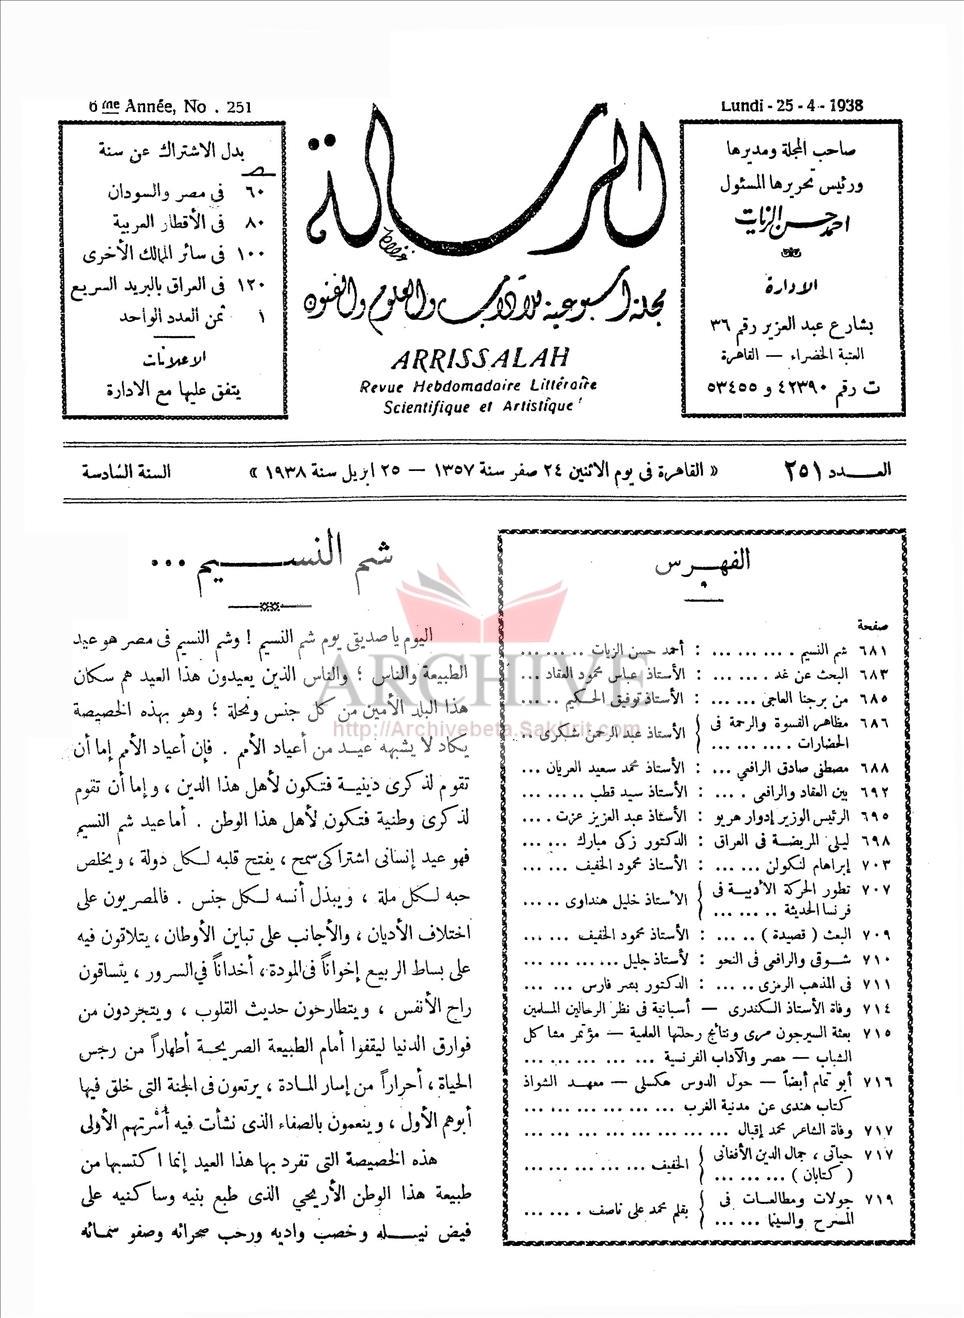 6 me Année, No . 251
Lundi - 25 - 4 - 1938
صاحب المجلة ومديرها
ورئيس تحريرها المسئول
احمد حسن الزيات
الادارة
بشارع عبد العزيز رقم ٣٦
العتبة الخضراء — القاهرة
ت رقم ٤٢٣٩٠ و ٥٣٤٥٥
الرسالة
مجلة أسبوعية للآداب والعلوم والفنون
ARRISSALAH
Revue Hebdomadaire Littéraire
Scientifique et Artistique
بدل الاشتراك عن سنة
٦٠ فى مصر والسودان
٨٠ فى الأقطار العربية
١٠٠ فى سائر الممالك الأخرى
١٢٠ فى العراق بالبريد السريع
١ ثمن العدد الواحد
الاعلانات
يتفق عليها مع الادارة
العـــدد ٢٥١
« القاهرة فى يوم الاثنين ٢٤ صفر سنة ١٣٥٧ — ٢٥ ابريل سنة ١٩٣٨ »
السنة السادسة
الفهـــرس
صفحة
٦٨١ شم النسيم . ... ... ... : أحمد حسن الزيات ... ... ...
٦٨٣ البحث عن غد . ... ... : الأستاذ عباس محمود العقاد ...
٦٨٥ من برجنا العاجى ... ... : الأستاذ توفيق الحكيم .. ...
٦٨٦ مظاهر القسوة والرحمة فى الحضارات . ... ... ... { الأستاذ عبد الرحمن شكرى ...
٦٨٨ مصطفى صادق الرافعي ... : الأستاذ محمد سعيد العريان ...
٦٩٢ بين العقاد والرافعى . ... : الأستاذ سيد قطب .. ... ...
٦٩٥ الرئيس الوزير إدوار هريو : الأستاذ عبد العزيز عزت . ...
٦٩٨ ليلى المريضة فى العراق : الدكتور زكى مبارك ... ...
٧٠٣ إبراهام لنكولن ... ... : الأستاذ محمود الخفيف ... ...
٧٠٧ تطور الحركة الأدبية فى فرنسا الحديثة .. ... ... { الأستاذ خليل هنداوى .. ...
٧٠٩ البعث ( قصيدة ) .. ... : الأستاذ محمود الخفيف ... ...
٧١٠ شوقى والرافعى فى النحو : لأستاذ جليل ... ... ... ...
٧١١ فى المذهب الرمزى .. ... : الدكتور بشر فارس ... ...
٧١٤ وفاة الأستاذ السكندرى — أسبانية فى نظر الرحالين المسلمين
٧١٥ بعثة السيرجون مرى ونتائج رحلتها العلمية — مؤتمر مشاكل
الشباب — مصر والآداب الفرنسية ... ... ... ... ...
٧١٦ أبو تمام أيضاً — حول الدوس هكسلى — معهد الشواذ
كتاب هندى عن مدنية الغرب ... ... ... ... ...
٧١٧ وفاة الشاعر محمد إقبال ... ... ... ... ... ... ...
٧١٧ حياتى ، جمال الدين الأفغانى ( كتابان ) ... ... ... { الخفيف ... ... ... ... ...
٧١٩ جولات ومطالعات فى المسرح والسينما ... ... { بقلم محمد على ناصف . ... ...
شم النســـيم ...
اليوم يا صديقى يوم شم النسيم ! وشم النسيم فى مصر هو عيد
الطبيعة والناس ؛ والناس الذين يعيدون هذا العيد هم سكان
هذا البلد الأمين من كل جنس ونحلة ؛ وهو بهذه الخصيصة
يكاد لا يشبهه عيد من أعياد الأمم . فإن أعياد الأمم إما أن
تقوم لذكرى دينية فتكون لأهل هذا الدين ، وإما أن تقوم
لذكرى وطنية فتكون لأهل هذا الوطن . أما عيد شم النسيم
فهو عيد إنسانى اشتراكى سمح ، يفتح قلبه لكل دولة ، ويخلص
حبه لكل ملة ، ويبذل أنسه لكل جنس . فالمصريون على
اختلاف الأديان ، والأجانب على تباين الأوطان ، يتلاقون فيه
على بساط الربيع إخواناً فى المودة ، أخداناً فى السرور ، يتساقون
راح الأنفس ، ويتطارحون حديث القلوب ، ويتجردون من
فوارق الدنيا ليقفوا أمام الطبيعة الصريحة أطهاراً من رجس
الحياة ، أحراراً من إسار المادة ، يرتعون فى الجنة التى خلق فيها
أبوهم الأول ، وينعمون بالصفاء الذى نشأت فيه أسرتهم الأولى
هذه الخصيصة التى تفرد بها هذا العيد إنما اكتسبها من
طبيعة هذا الوطن الأريحي الذى طبع بنيه وساكنيه على
فيض نيـــله وخصب واديه ورحب صحرائه وصفو سمائه
ARCHIVE
http://Archivebeta.Sakhrit.com